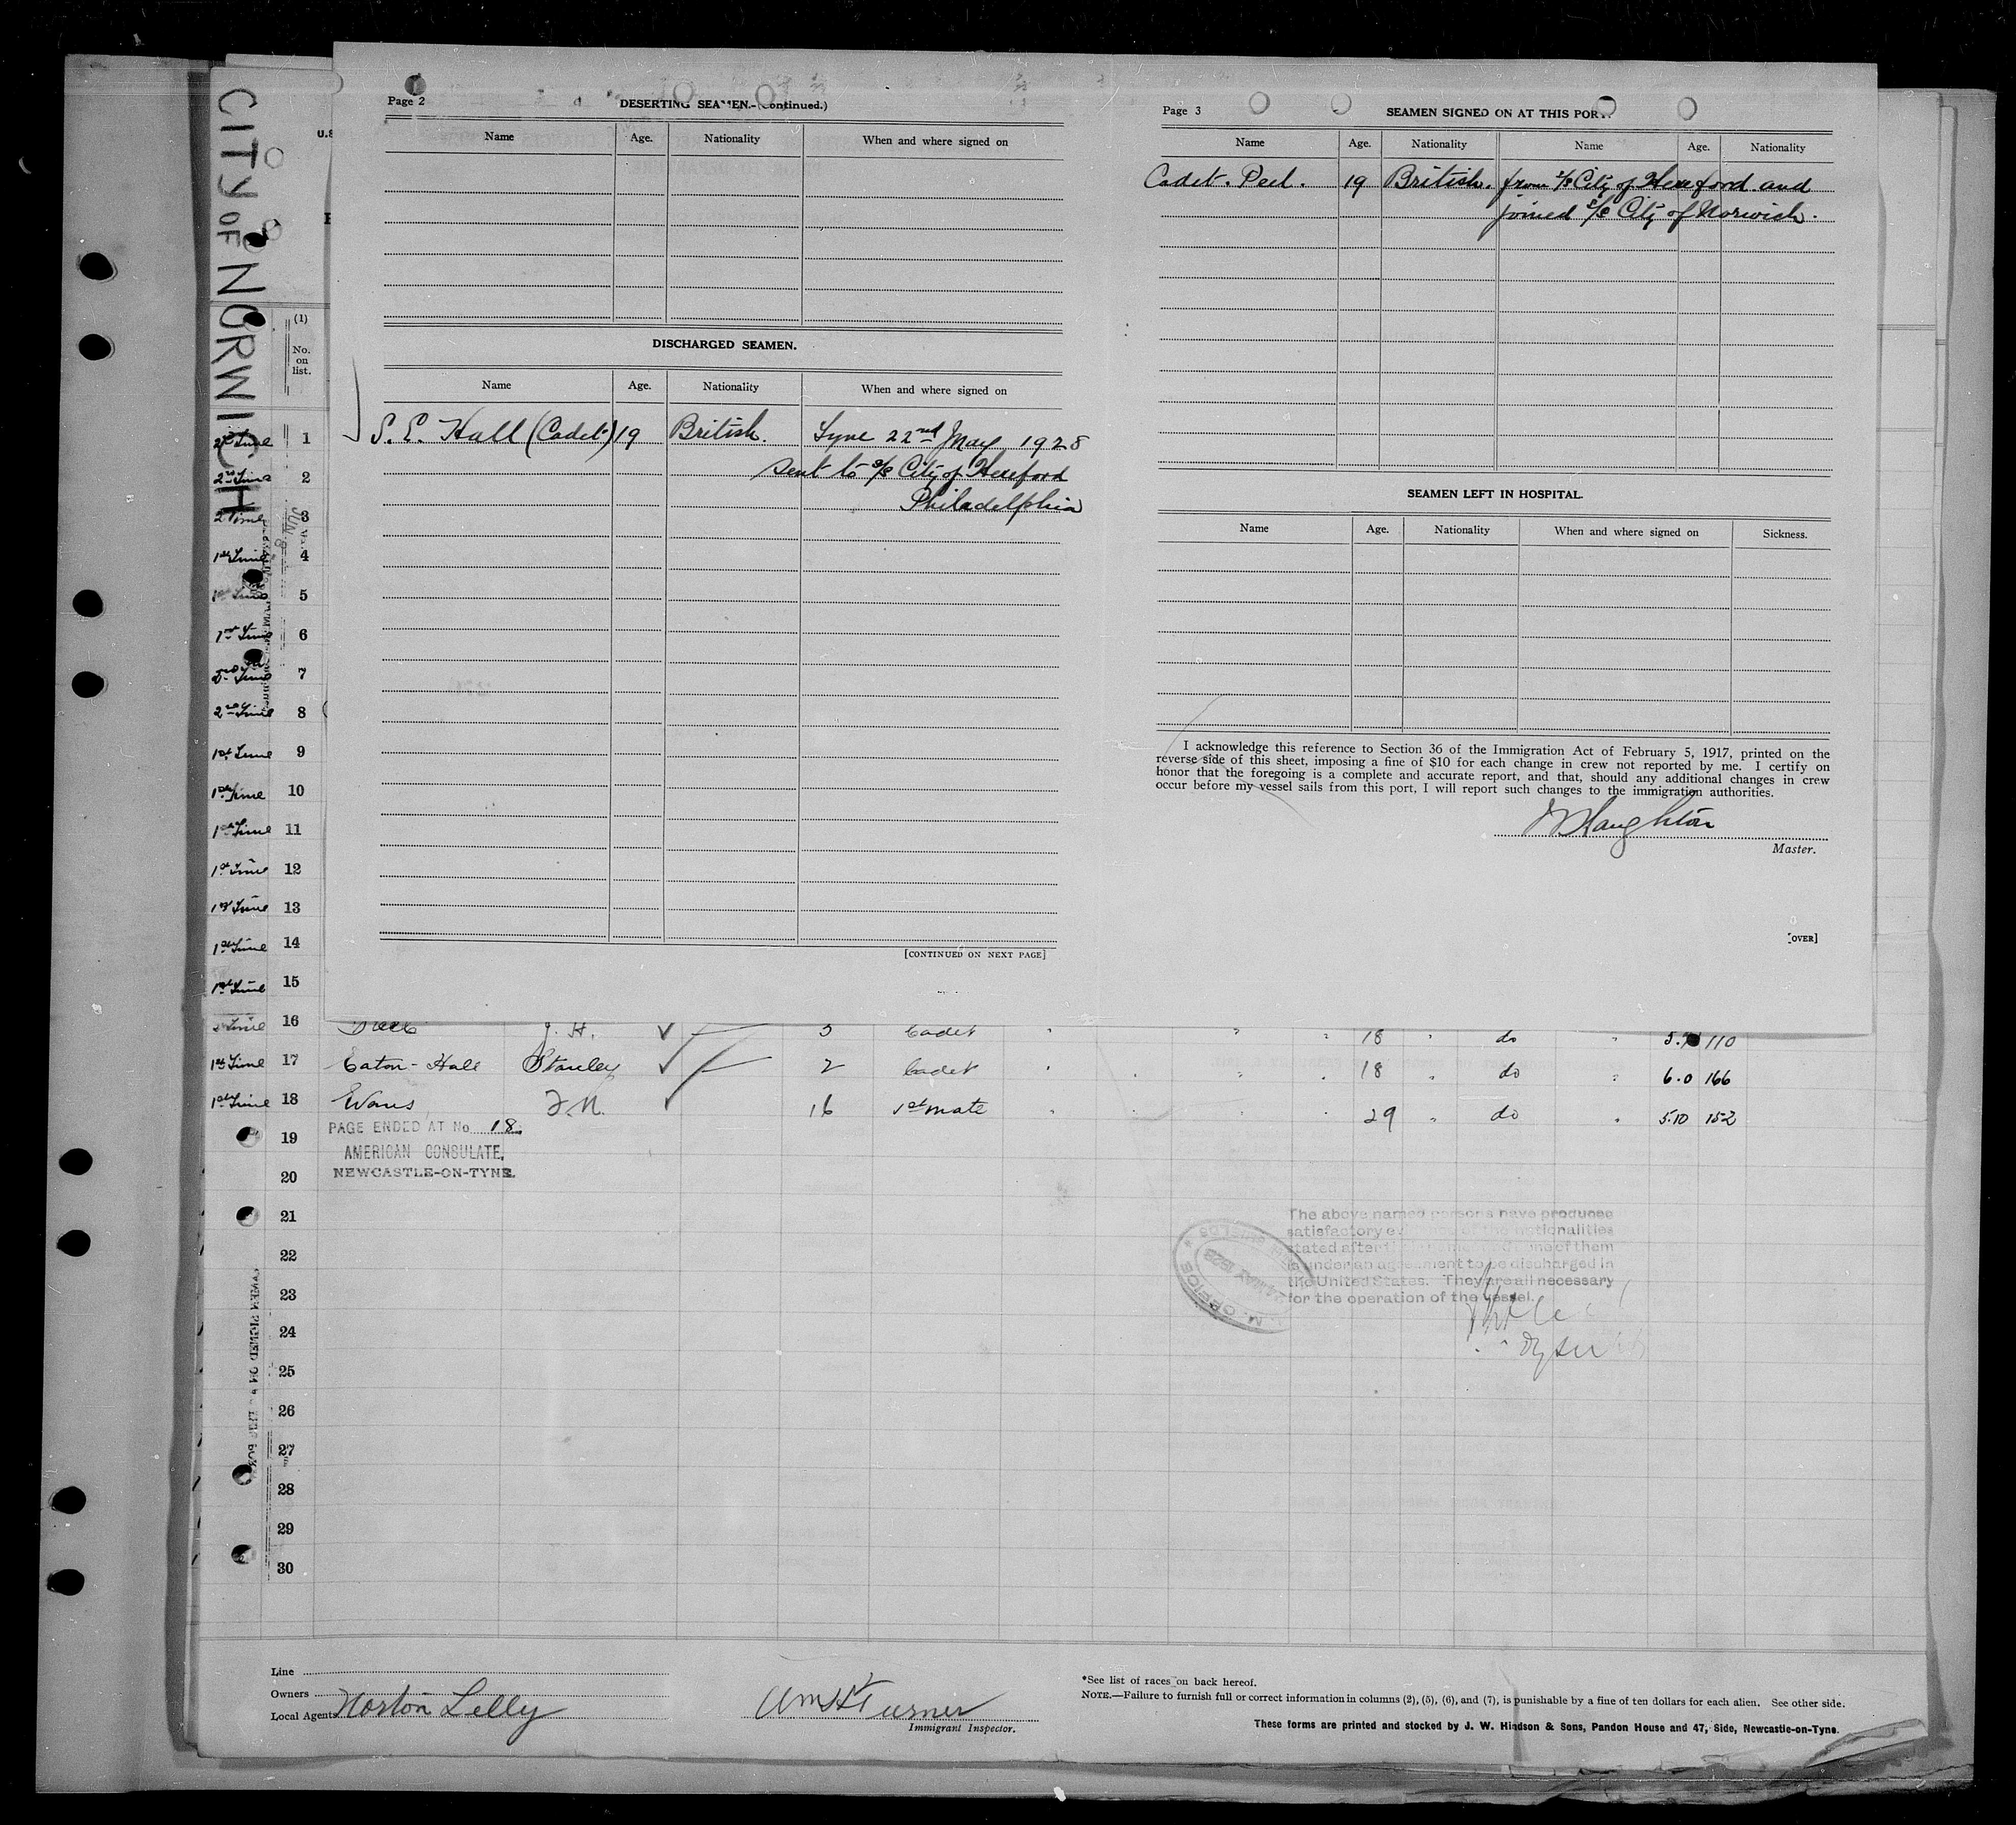 CITY OF NORWICH
Page 2
DESERTING SEAMEN.-(Continued.)
Name Age. Nationality When and where signed on
DISCHARGED SEAMEN.
Name Age. Nationality When and where signed on
S. E. Hall (Cadet) 19 British. Tyne 22nd May 1928
sent to s/s City of Hereford
Philadelphia
[CONTINUED ON NEXT PAGE]
Page 3
SEAMEN SIGNED ON AT THIS PORT.
Name Age. Nationality Name Age. Nationality
Cadet. Peel. 19 British. from s/s City of Hereford and
joined s/s City of Norwich.
SEAMEN LEFT IN HOSPITAL.
Name Age. Nationality When and where signed on Sickness.
I acknowledge this reference to Section 36 of the Immigration Act of February 5, 1917, printed on the
reverse side of this sheet, imposing a fine of $10 for each change in crew not reported by me. I certify on
honor that the foregoing is a complete and accurate report, and that, should any additional changes in crew
occur before my vessel sails from this port, I will report such changes to the immigration authorities.
Master.
[OVER]
(1)
No.
on
list.
2nd Time 1
2nd Time 2
2 Time 3
1st Time 4
1st Time 5
1st Time 6
2nd Time 7
2nd Time 8
1st Time 9
1st Time 10
1st Time 11
1st Time 12
1st Time 13
1st Time 14
1st Time 15
Time 16 J. H. 3 Cadet 18 do 110
1st Time 17 Eaton-Hall Stanley 2 Cadet " 18 " do " 6.0 166
1st Time 18 Evans 16 1st mate " 29 " do " 5.10 152
PAGE ENDED AT No. 18.
AMERICAN CONSULATE,
NEWCASTLE-ON-TYNE.
19
20
21
22
23
24
25
26
27
28
29
30
The above named persons have produced
satisfactory evidence of the nationalities
stated after
is under an agreement to be discharged in
the United States. They are all necessary
for the operation of the vessel.
24 MAY 1928
Line
Owners
Local Agents Norton Lilly
Wm H Turner
Immigrant Inspector.
*See list of races on back hereof.
NOTE.—Failure to furnish full or correct information in columns (2), (5), (6), and (7), is punishable by a fine of ten dollars for each alien. See other side.
These forms are printed and stocked by J. W. Hindson & Sons, Pandon House and 47, Side, Newcastle-on-Tyne.